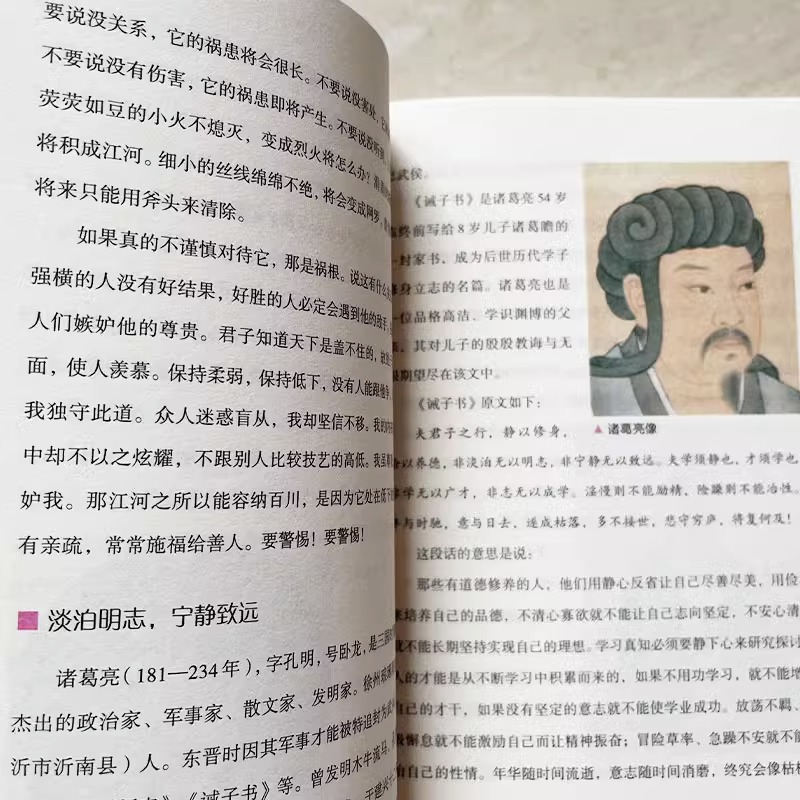 要说没关系，它的祸患将会很长。不要说没害处，它
不要说没有伤害，它的祸患即将产生。不要说没听到
荧荧如豆的小火不熄灭，变成烈火将怎么办？涓涓
将积成江河。细小的丝线绵绵不绝，将会变成网罗，
将来只能用斧头来清除。
如果真的不谨慎对待它，那是祸根。说这有什么
强横的人没有好结果，好胜的人必定会遇到他的敌手。
人们嫉妒他的尊贵。君子知道天下是盖不住的，故
面，使人羡慕。保持柔弱，保持低下，没有人能跟他争
我独守此道。众人迷惑盲从，我却坚信不移。我的内
中却不以之炫耀，不跟别人比较技艺的高低。我虽
妒我。那江河之所以能容纳百川，是因为它处在低下
有亲疏，常常施福给善人。要警惕！要警惕！
淡泊明志，宁静致远
诸葛亮（181—234年），字孔明，号卧龙，是三国
杰出的政治家、军事家、散文家、发明家。徐州琅
沂市沂南县）人。东晋时因其军事才能被特追封为武
《诫子书》等。曾发明木牛流马、
武侯。
《诫子书》是诸葛亮54岁
临终前写给8岁儿子诸葛瞻的
一封家书，成为后世历代学子
修身立志的名篇。诸葛亮也是
一位品格高洁、学识渊博的父
亲，其对儿子的殷殷教诲与无
限期望尽在该文中。
《诫子书》原文如下：
夫君子之行，静以修身，
俭以养德，非淡泊无以明志，非宁静无以致远。夫学须静也，才须学也，
非学无以广才，非志无以成学。淫慢则不能励精，险躁则不能治性。
年与时驰，意与日去，遂成枯落，多不接世，悲守穷庐，将复何及！
▲ 诸葛亮像
这段话的意思是说：
那些有道德修养的人，他们用静心反省让自己尽善尽美，用俭
来培养自己的品德，不清心寡欲就不能让自己志向坚定，不安心清
就不能长期坚持实现自己的理想。学习真知必须要静下心来研究探讨
人的才能是从不断学习中积累而来的，如果不用功学习，就不能增
自己的才干，如果没有坚定的意志就不能使学业成功。放荡不羁、
极懈怠就不能激励自己而让精神振奋；冒险草率、急躁不安就不能
自己的性情。年华随时间流逝，意志随时间消磨，终究会像枯